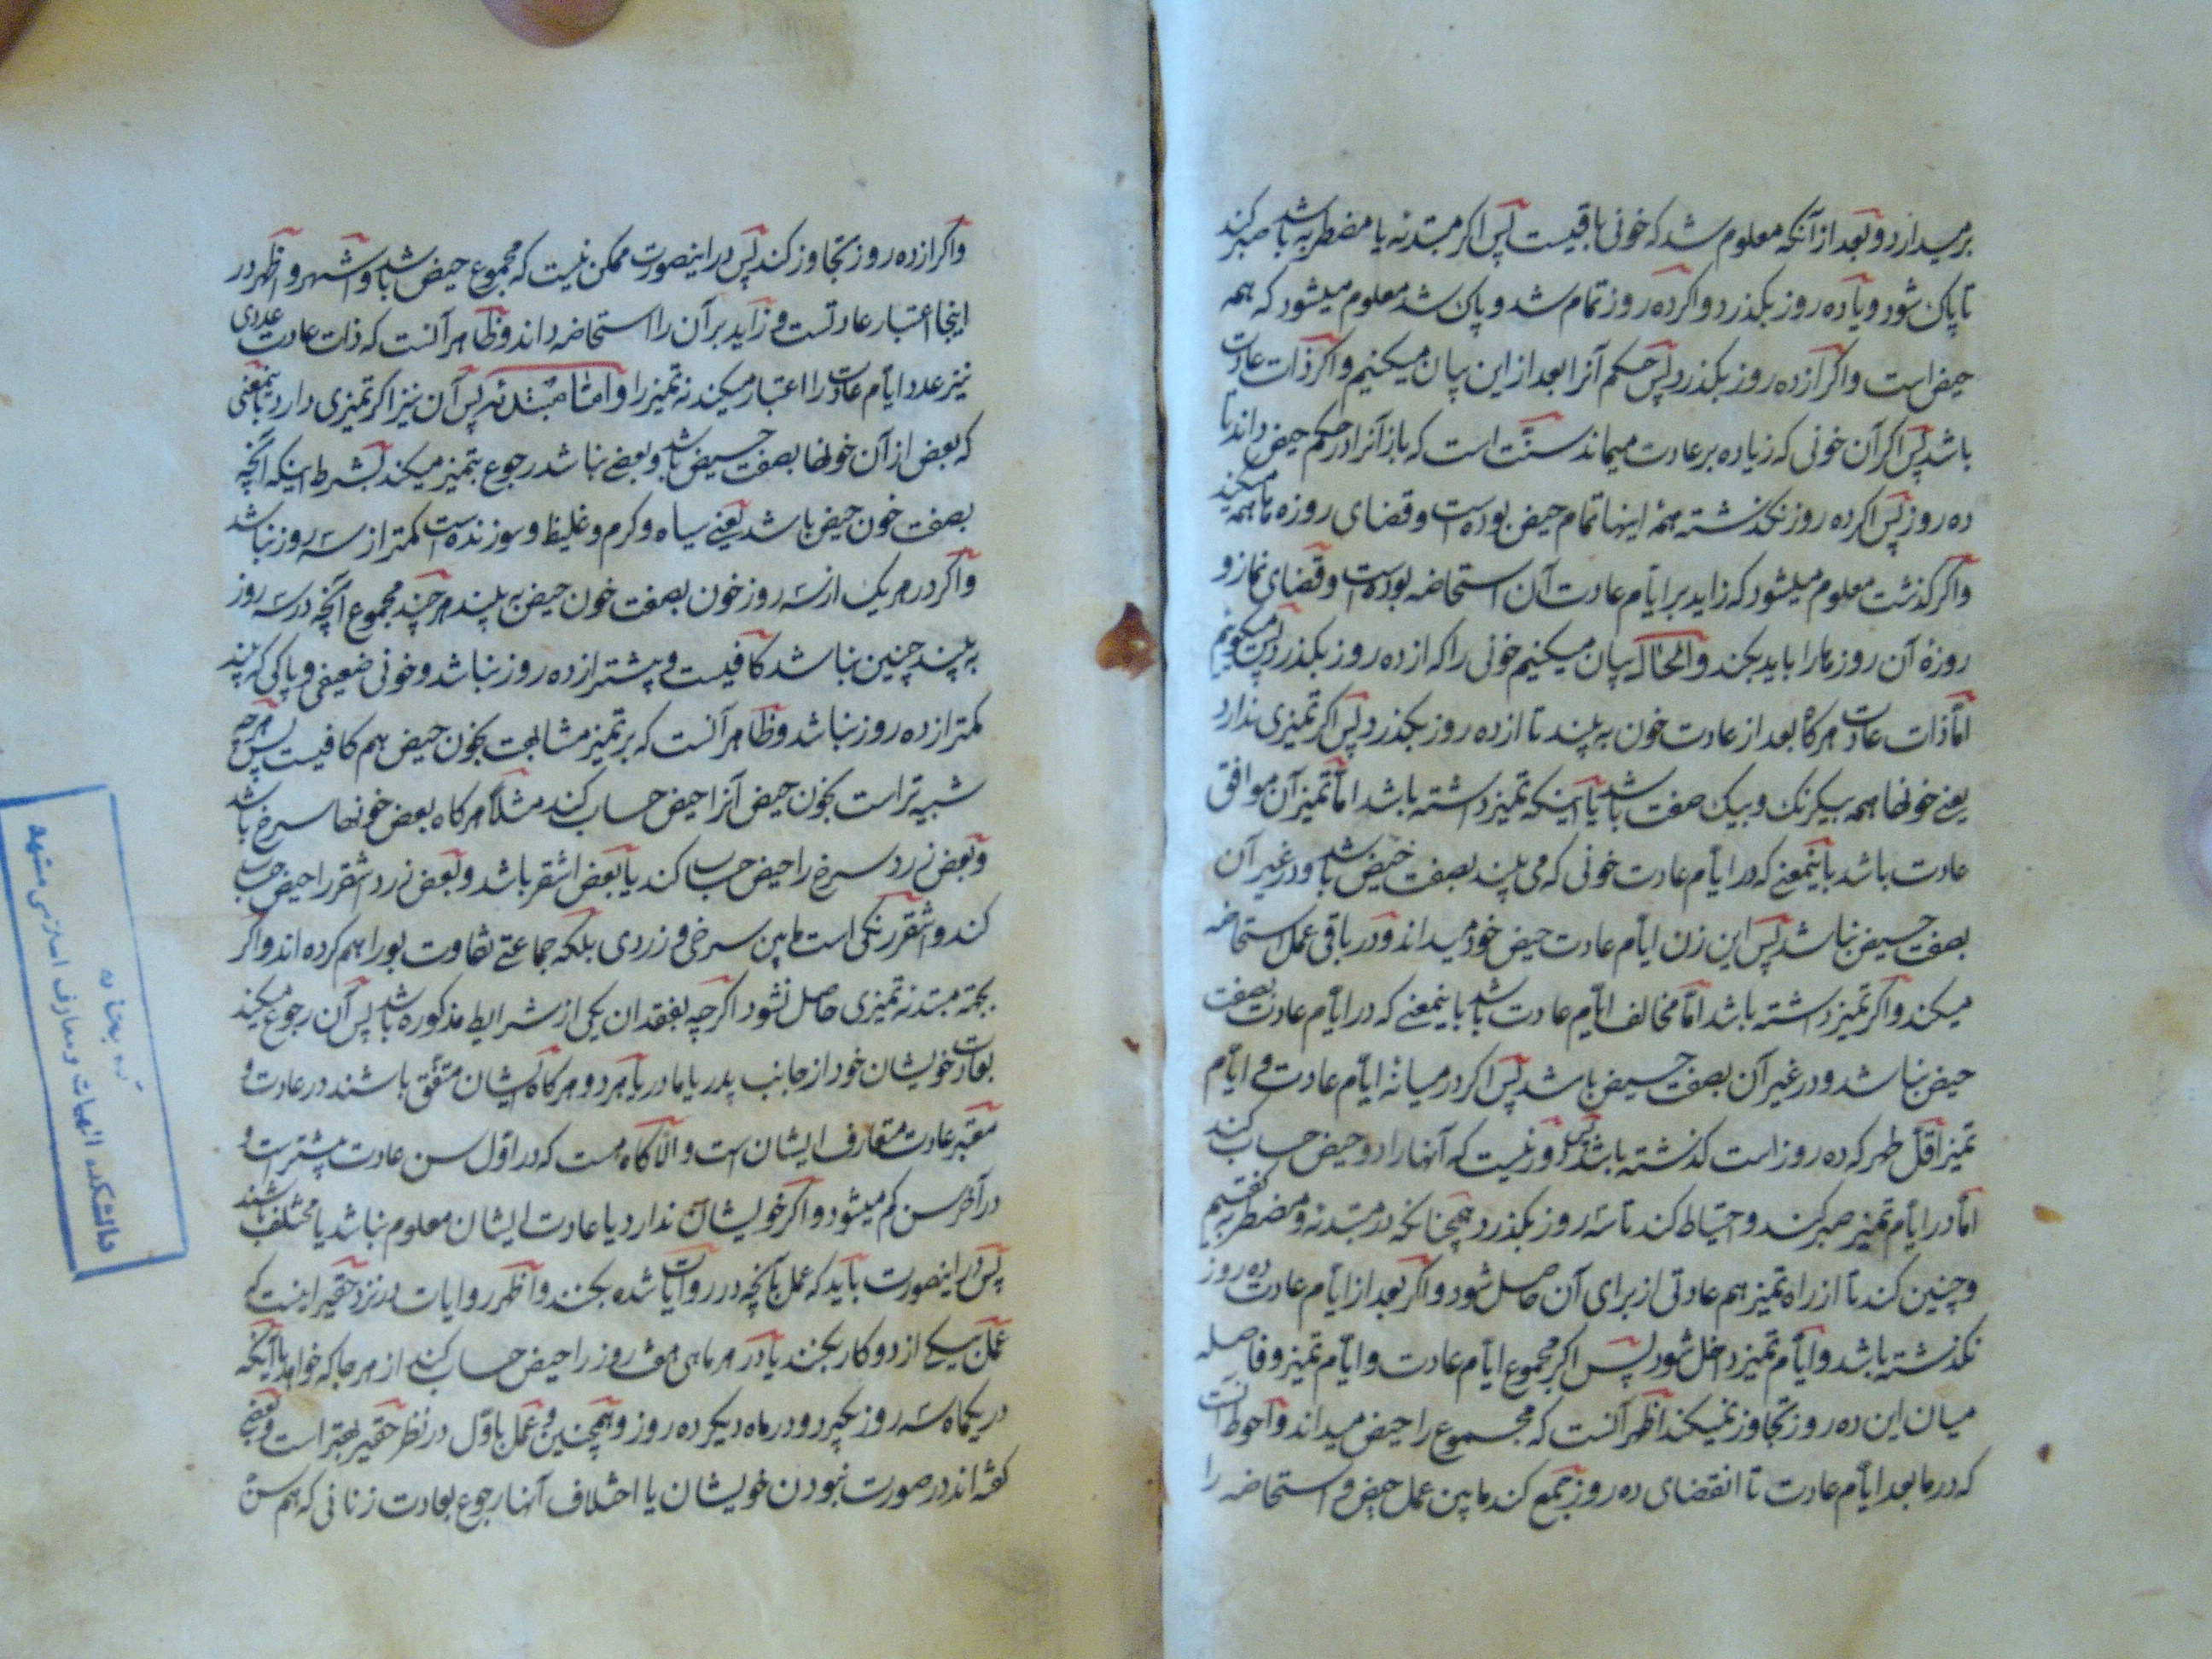 برمیدارد و بعد از آنکه معلوم شد که خونی باقیست پس اکر مبتدئه یا مضطربه باشد صبر کند
تا پاک شود و یا ده روز بکذرد و اکر ده روز تمام شد و پاک شد معلوم میشود که همه
حیض است و اکر از ده روز بکذرد پس حکم آنرا بعد از این بیان میکنیم و اکر ذات عادت
باشد پس اکر آن خونی که زیاده بر عادت میماند سنت است که باز آنرا در حکم حیض داند تا
ده روز پس اکر ده روز نکذشته همهٔ اینها تمام حیض بوده است و قضای روزه ها همه میکند
و اکر کذشت معلوم میشود که زاید بر ایام عادت آن استحاضه بوده است و قضای نماز و
روزه آن روزها را باید بکند و الحال بیان میکنیم خونی را که از ده روز بکذرد پس میکوییم
اما ذات عادت هرکاه بعد از عادت خون به بیند تا از ده روز بکذرد پس اکر تمیزی ندارد
یعنی خونها همه بیکرنک و بیک صفت باشد یا اینکه تمیز داشته باشد اما تمیز آن موافق
عادت باشد باینمعنی که در ایام عادت خونی که می بیند بصفت حیض باشد و در غیر آن
بصفت حیض نباشد پس این زن ایام عادت حیض خود میداند و در باقی عمل استحاضه
میکند و اکر تمیز داشته باشد اما مخالف ایام عادت باشد باینمعنی که در ایام عادت بصفت
حیض نباشد و در غیر آن بصفت حیض باشد پس اکر در میانهٔ ایام عادت و ایام
تمیز اقل طهر که ده روز است کذشته باشد پس دور نیست که آنها را دو حیض حساب کند
اما در ایام تمیز صبر کند و احتیاط کند تا سه روز بکذرد همچنانکه در مبتدئه و مضطربه کفتیم
و چنین کند تا از راه تمیز هم عادتی از برای آن حاصل شود و اکر بعد از ایام عادت ده روز
نکذشته باشد و ایام تمیز داخل شود پس اکر مجموع ایام عادت و ایام تمیز و فاصله
میان این ده روز تجاوز نمیکند اظهر آنست که مجموع را حیض میداند و احوط آنست
که در مابعد ایام عادت تا انقضای ده روز جمع کند مابین عمل حیض و استحاضه را
و اکر از ده روز تجاوز کند پس در اینصورت ممکن نیست که مجموع حیض باشد و اشهر و اظهر در
اینجا اعتبار عادتست و زاید بر آن را استحاضه داند و ظاهر آنست که ذات عادت عددی
نیز عدد ایام عادت را اعتبار میکند نه تمیز را و اما مبتدئه پس آن نیز اکر تمیزی دارد باینمعنی
که بعض از آن خونها بصفت حیض باشد و بعضی نباشد رجوع بتمیز میکند بشرط اینکه آنچه
بصفت خون حیض باشد یعنی سیاه و کرم و غلیظ و سوزنده است کمتر از سه روز نباشد
و اکر در هر یک از سه روز خون بصفت خون حیض به بیند هر چند مجموع آنچه در سه روز
به بیند چنین نباشد کافیست و بیشتر از ده روز نباشد و خونی ضعیفی و پاکی که بیند
کمتر از ده روز نباشد و ظاهر آنست که بر تمیز مشابهت بخون حیض هم کافیست پس هرچه
شبیه تر است بخون حیض آنرا حیض حساب کند مثلا هرکاه بعض خونها سرخ باشد
و بعض زرد سرخ را حیض حساب کند یا بعض اشقر باشد و بعض زرد اشقر را حیض حساب
کند و اشقر رنکی است مابین سرخی و زردی بلکه جماعتی تفاوت بو را هم کرده اند و اکر
بجهة مبتدئه تمیزی حاصل نشود اکرچه بفقدان یکی از شرایط مذکوره باشد پس آن رجوع میکند
بعادت خویشان خود از جانب پدر یا مادر یا هر دو هرکاه ایشان متفق باشند در عادت و
معتبر عادت متعارف ایشان است و الا کاه هست که در اول سن عادت بیشتر است و
در آخر سن کم میشود و اکر خویشان ندارد یا عادت ایشان معلوم نباشد یا مختلف باشند
پس در اینصورت باید که عمل بآنچه در روایات شده بکند و اظهر روایات در نزد حقیر اینست که
عمل بیکی از دو کار بکند یا در هر ماهی هفت روز را حیض حساب کند از هر جا که خواهد یا آنکه
در یکماه سه روز بکیرد و در ماه دیکر ده روز و همچنین و عمل باول در نظر حقیر بهتر است و بعضی
کفته اند در صورت نبودن خویشان یا اختلاف آنها رجوع بعادت زنانی که هم سن
دانشکده الهیات و معارف اسلامی مشهد